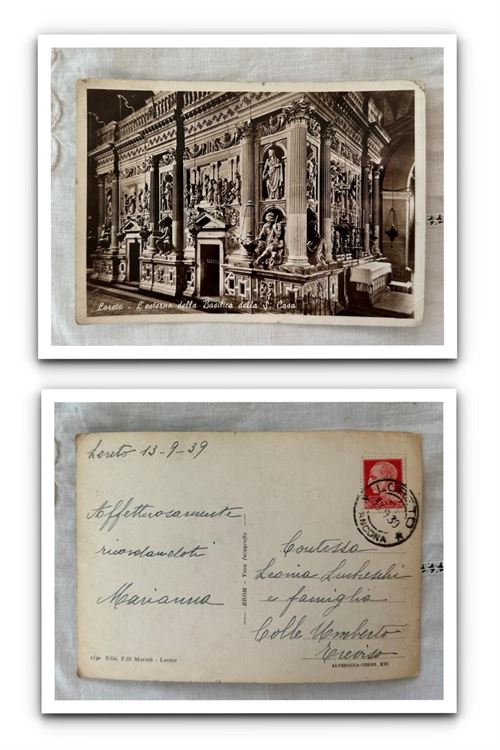 Loreto - L'esterno della Basilica della S. Casa
Loreto 13-9-39
Affettuosamente
ricordandoti
Marianna
BROM - Vera fotografia
LORETO
ANCONA
Contessa
Leonia Lucheschi
e famiglia
Colle Umberto
Treviso
Ediz. F.lli Marconi - Loreto
ALTEROCCA-TERNI XVI